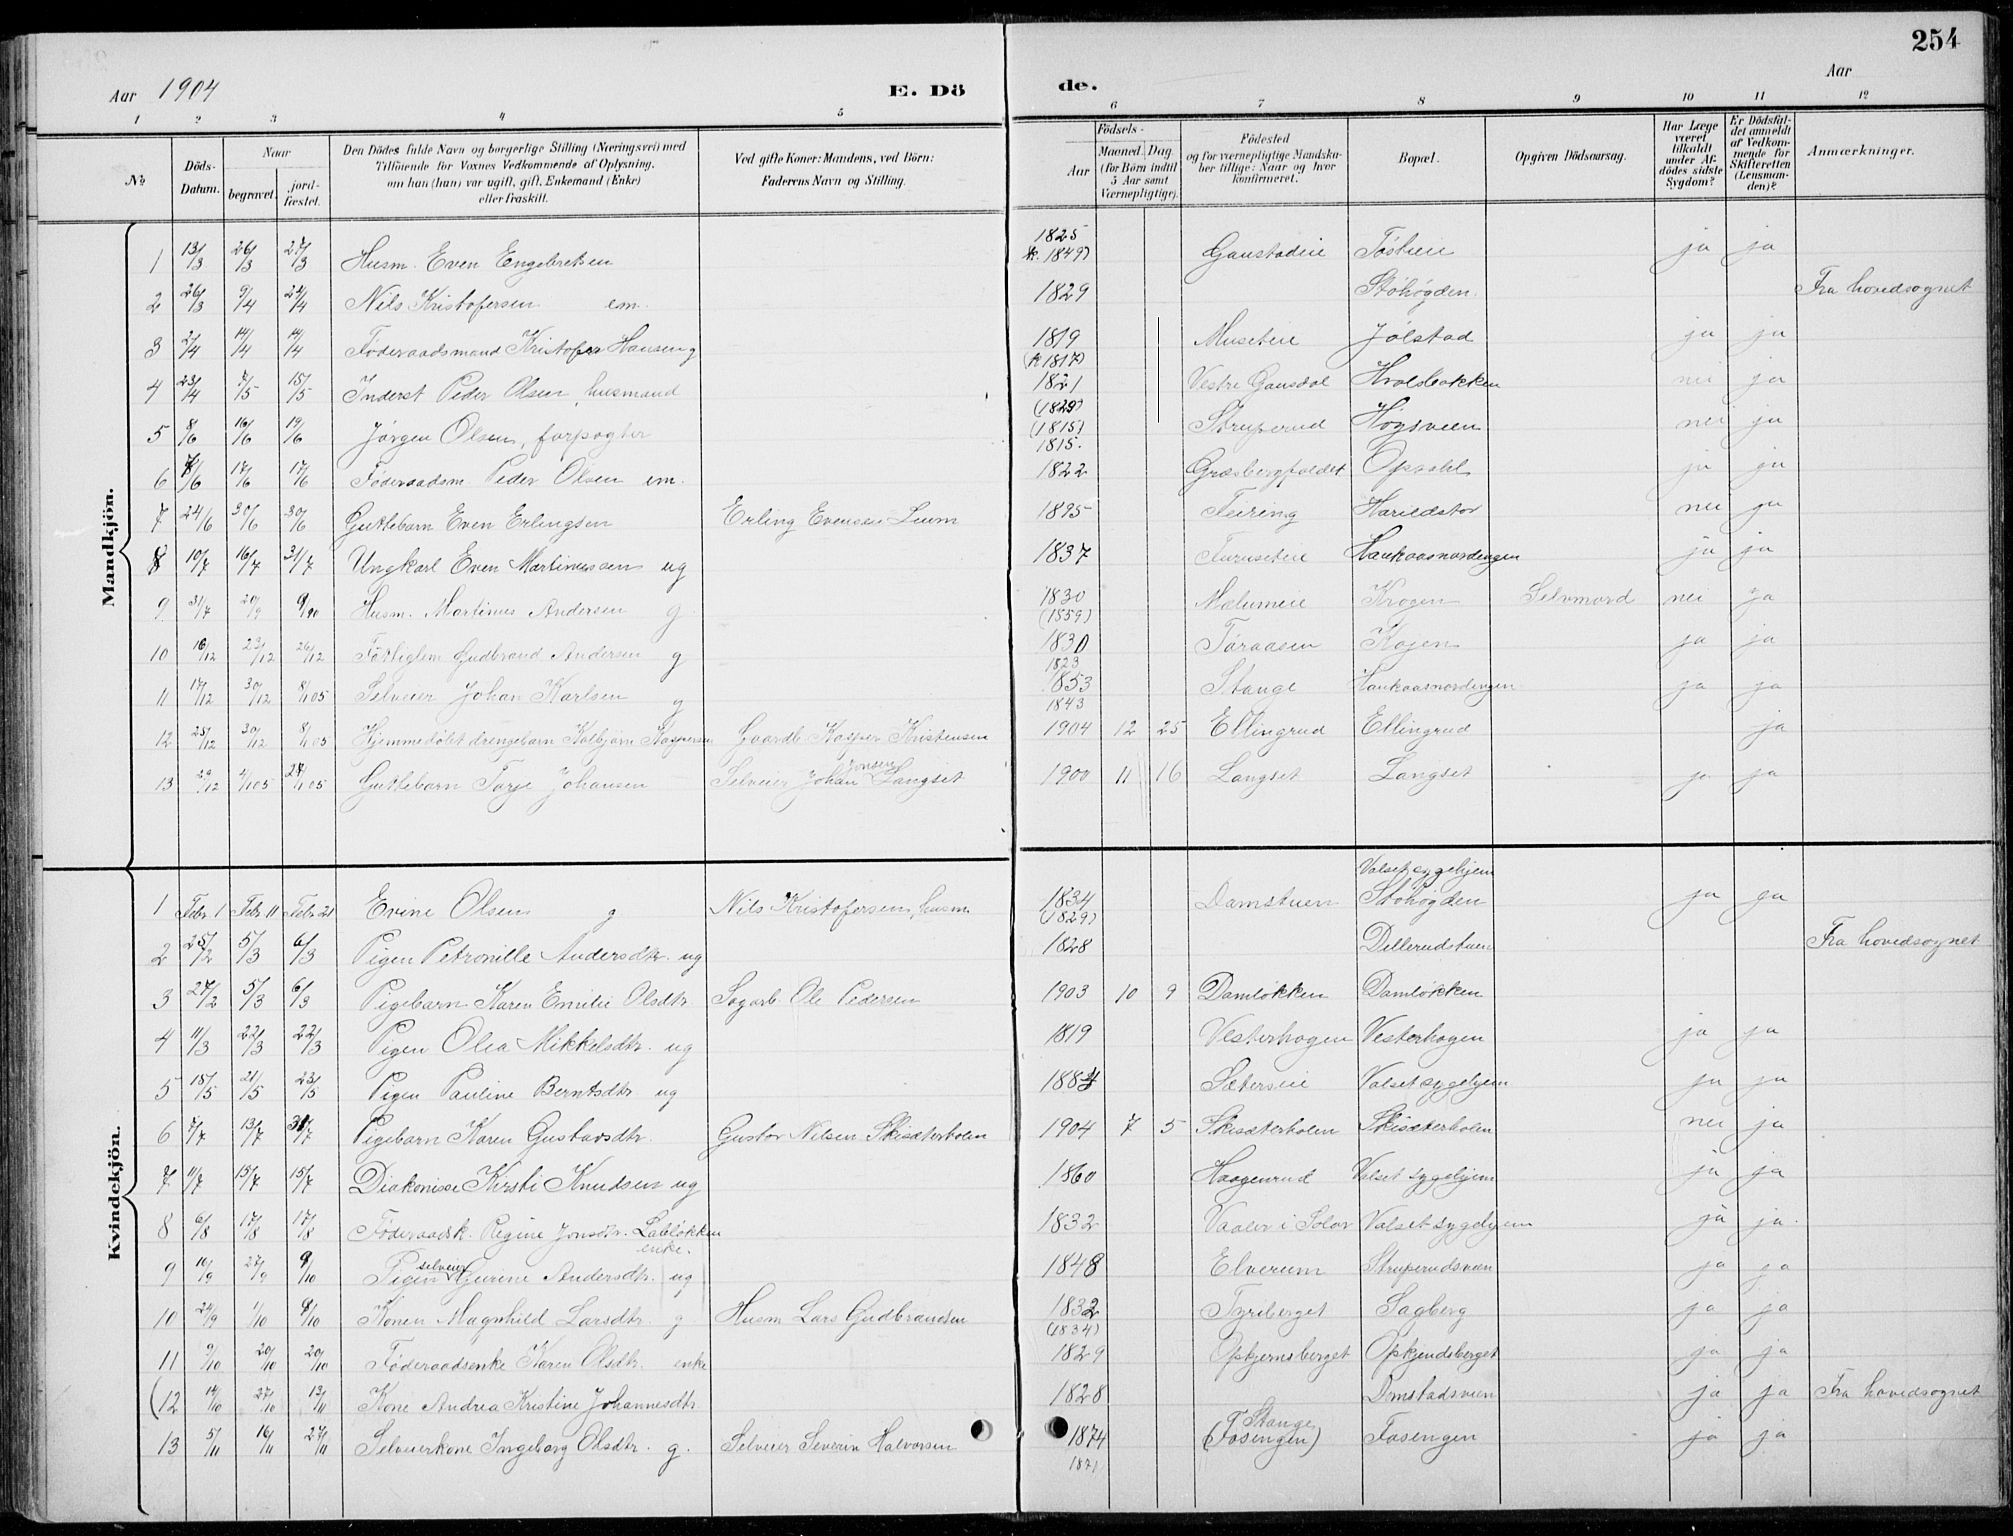 254
Aar 1904
E. Dö de.
Aar
1 2 3 4 5 6 7 8 9 10 11 12
No.
Döds-Datum.
Naar
begravet.
jord-fæstet.
Den Dödes fulde Navn og borgerlige Stilling (Næringsvei) med
Tilföiende for Voxnes Vedkommende af Oplysning,
om han (hun) var ugift, gift, Enkemand (Enke)
eller fraskilt.
Ved gifte Koner: Mandens, ved Börn:
Faderens Navn og Stilling.
Födsels-
Aar
Maaned. Dag
(for Börn indtil
5 Aar samt
Værnepligtige).
Födested
og for værnepligtige Mandska-
ber tillige: Naar og hvor
konfirmeret.
Bopæl.
Opgiven Dödsaarsag.
Har Læge
været
tilkaldt
under Af-
dödes sidste
Sygdom?
Er Dödsfal-
det anmeldt
af Vedkom-
mende for
Skifteretten
(Lensman-
den)?
Anmærkninger.
Mandkjön.
1 13/3 26/3 27/3 Husm. Even Engebretsen 1825 (k. 1849) Gaustadeie ja ja
2 26/3 9/4 24/4 Nils Kristofersen em. 1829 Stöhögden. Fra hovedsognet
3 2/4 14/4 14/4 Föderaadsmand Kristofer Hansen g 1819 (k 1817) Museteie Jölstad ja ja
4 23/4 7/5 15/5 Inderst Peder Olsen, husmand 1821 (1829) Vestre Gausdal Hvalsbakken nei ja
5 8/6 16/6 19/6 Jörgen Olsen, forpagter (1815) 1815. Struperud Högsveen nei ja
6 8/6 17/6 17/6 Föderaadsm Peder Olsen em. 1822 Græsbergfaldet Opsahl ja ja
7 24/6 30/6 30/6 Guttebarn Even Erlingsen Erling Evensen 1895 Feiring Harildstor nei ja
8 10/7 16/7 31/7 Ungkarl Even Martinussen ug 1837 Furuseteie Haukaasnordengen ja ja
9 31/7 20/9 9/90 Husm. Martinus Andersen g 1830 (1559) Mælumeie Krogen Selvmord nei ja
10 16/12 23/12 26/12 Gudbrand Andersen g 1830 1823 Töraasen Kojen ja ja
11 17/12 30/12 8/1 05 Selveier Johan Karlsen g 1853 1843 Stange Haukaasnordengen ja ja
12 25/12 30/12 8/1 05 Hjemmedöbt drengebarn Kolbjörn Kaspersen Gaardb. Kasper Kristensen 1904 12 25 Ellingrud Ellingrud ja
13 29/12 4/1 05 27/1 05 Guttebarn Tarje Johansen Selveier Johan Jonsen Langset 1900 11 16 Langset Langset ja ja
Kvindekjön.
1 Febr. 1 Febr. 11 Febr. 21 Evine Olsen g Nils Kristofersen, husm. 1834 (1829) Damstuen Valset sygehjem Stöhögden ja ja
2 25/2 5/3 6/3 Pigen Petronille Andersdtr. ug 1828 Dellerudstuen Fra hovedsognet
3 27/2 5/3 6/3 Pigebarn Karen Emilie Olsdtr Sagarb Ole Pedersen 1903 10 9 Damlökken Damlökken
4 11/3 22/3 22/3 Pigen Olea Mikkelsdtr. ug 1819 Vesterhagen Vesterhagen ja ja
5 15/5 21/5 23/5 Pigen Pauline Berntsdtr ug 1884 Sæterseie Valset sygehjem ja ja
6 7/7 13/7 31/7 Pigebarn Karen Gustavsdtr. Gustav Nilsen Skisæterholen 1904 7 5 Skisæterholen Skisæterholen nei ja
7 11/7 15/7 15/7 Diakonisse Kirsti Knudsen ug 1860 Haagenrud Valset sygehjem ja ja
8 6/8 17/8 17/8 Föderaadsk. Regine Jonsdtr. Labblökken enke. 1832 Vaaler i Solör Valset sygehjem ja ja.
9 16/9 27/9 9/10 Pigen selveier Gurine Andersdtr. ug 1848 Elverum Struperudsveen ja ja
10 24/9 1/10 9/10 Konen Magnhild Larsdtr. g Husm Lars Gudbrandsen 1832 (1834) Tyriberget Sagberg ja ja
11 9/10 20/10 20/10 Föderaadsenke Karen Olsdtr. enke 1829 Opkjernsberget Opkjendsberget ja ja
(12 14/10 27/10 13/11 Kone Andrea Kristine Johannesdtr. 1828 Omstadsveen ja ja Fra hovedsognet
13 5/11 16/11 27/11 Selveierkone Ingeborg Olsdtr. g. Selveier Severin Halvorsen 1874 1871 Stange (Fosengen) Fosengen ja ja